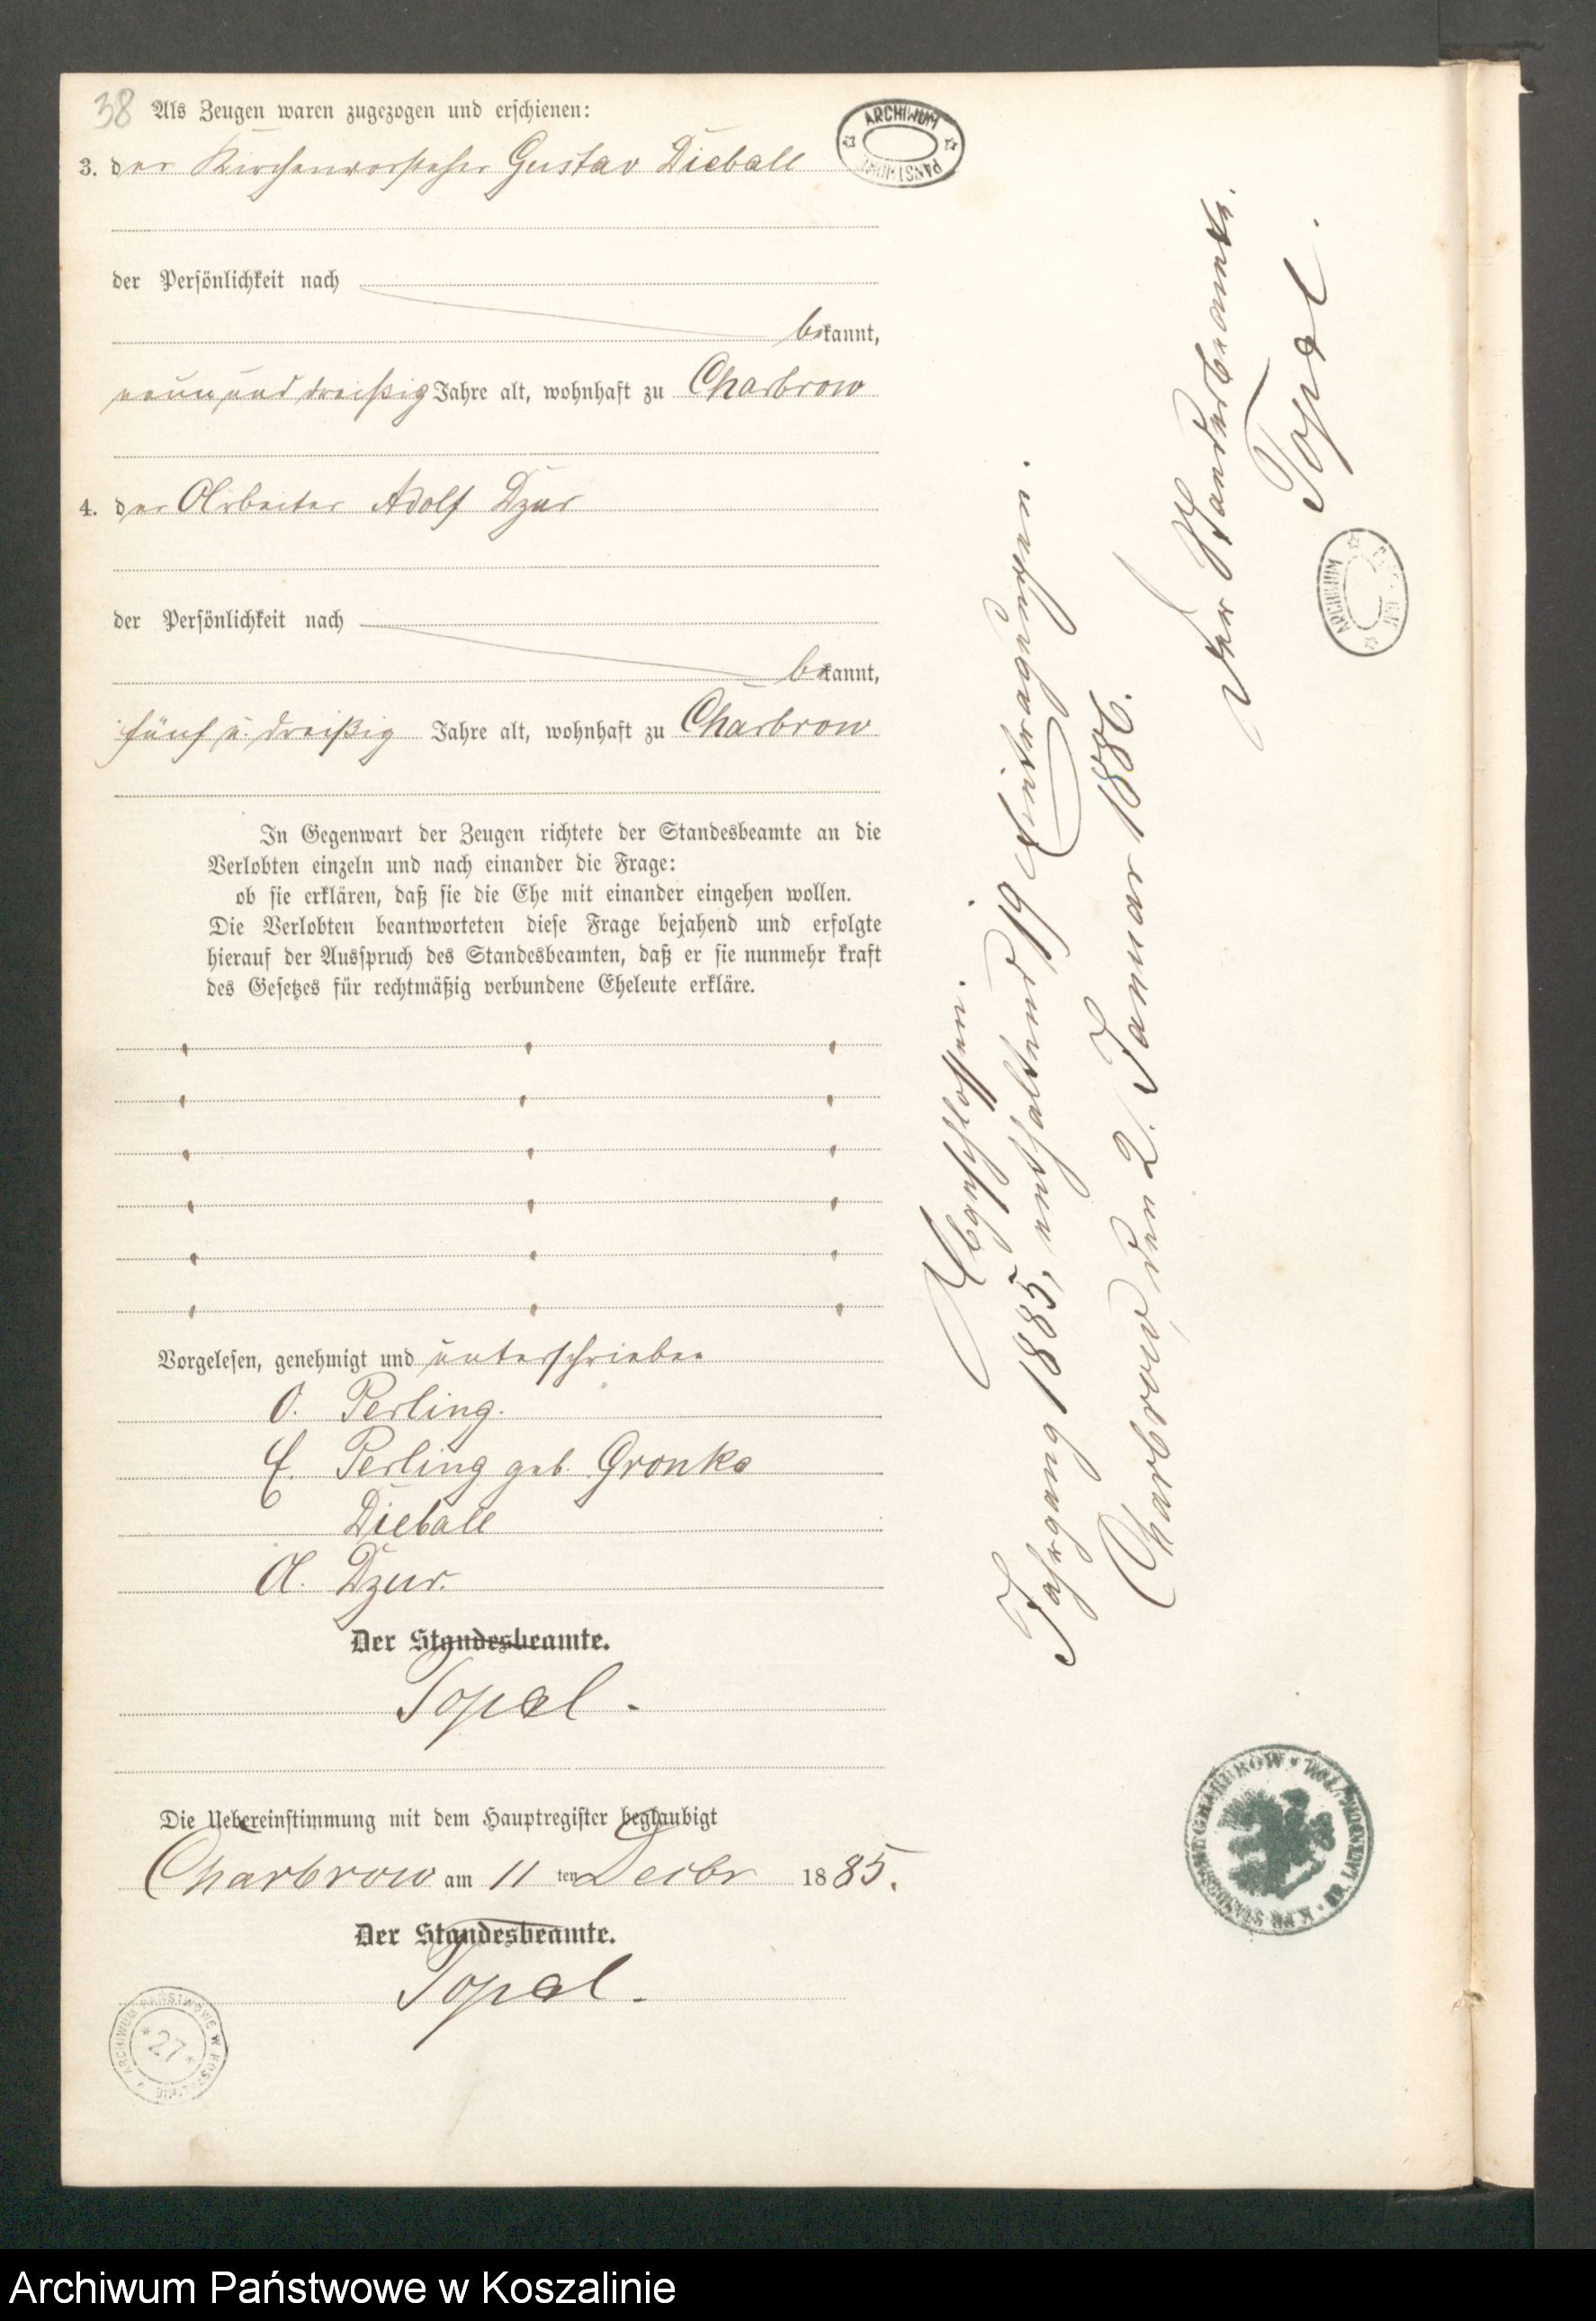 38 Als Zeugen waren zugezogen und erschienen:
3. der Kirchenvorsteher Gustav Dieball
der Persönlichkeit nach
bekannt,
neun und dreißig Jahre alt, wohnhaft zu Charbrow
4. der Arbeiter Adolf Dzur
der Persönlichkeit nach
bekannt,
fünf u. dreißig Jahre alt, wohnhaft zu Charbrow
In Gegenwart der Zeugen richtete der Standesbeamte an die
Verlobten einzeln und nach einander die Frage:
ob sie erklären, daß sie die Ehe mit einander eingehen wollen.
Die Verlobten beantworteten diese Frage bejahend und erfolgte
hierauf der Ausspruch des Standesbeamten, daß er sie nunmehr kraft
des Gesetzes für rechtmäßig verbundene Eheleute erkläre.
Vorgelesen, genehmigt und unterschrieben
O. Perling.
E. Perling geb. Gronke
Dieball
A. Dzur.
Der Standesbeamte.
Topel.
Die Uebereinstimmung mit dem Hauptregister beglaubigt
Charbrow am 11 ten Decbr 1885.
Der Standesbeamte.
Topel.
Abgeschlossen.
Jahrgang 1885, enthaltend 19 Eintragungen.
Charbrow, den 2. Januar 1886.
Der Standesbeamte.
Topel.
ARCHIWUM
ARCHIWUM
ARCHIWUM PAŃSTWOWE W KOSZALINIE
27
Archiwum Państwowe w Koszalinie